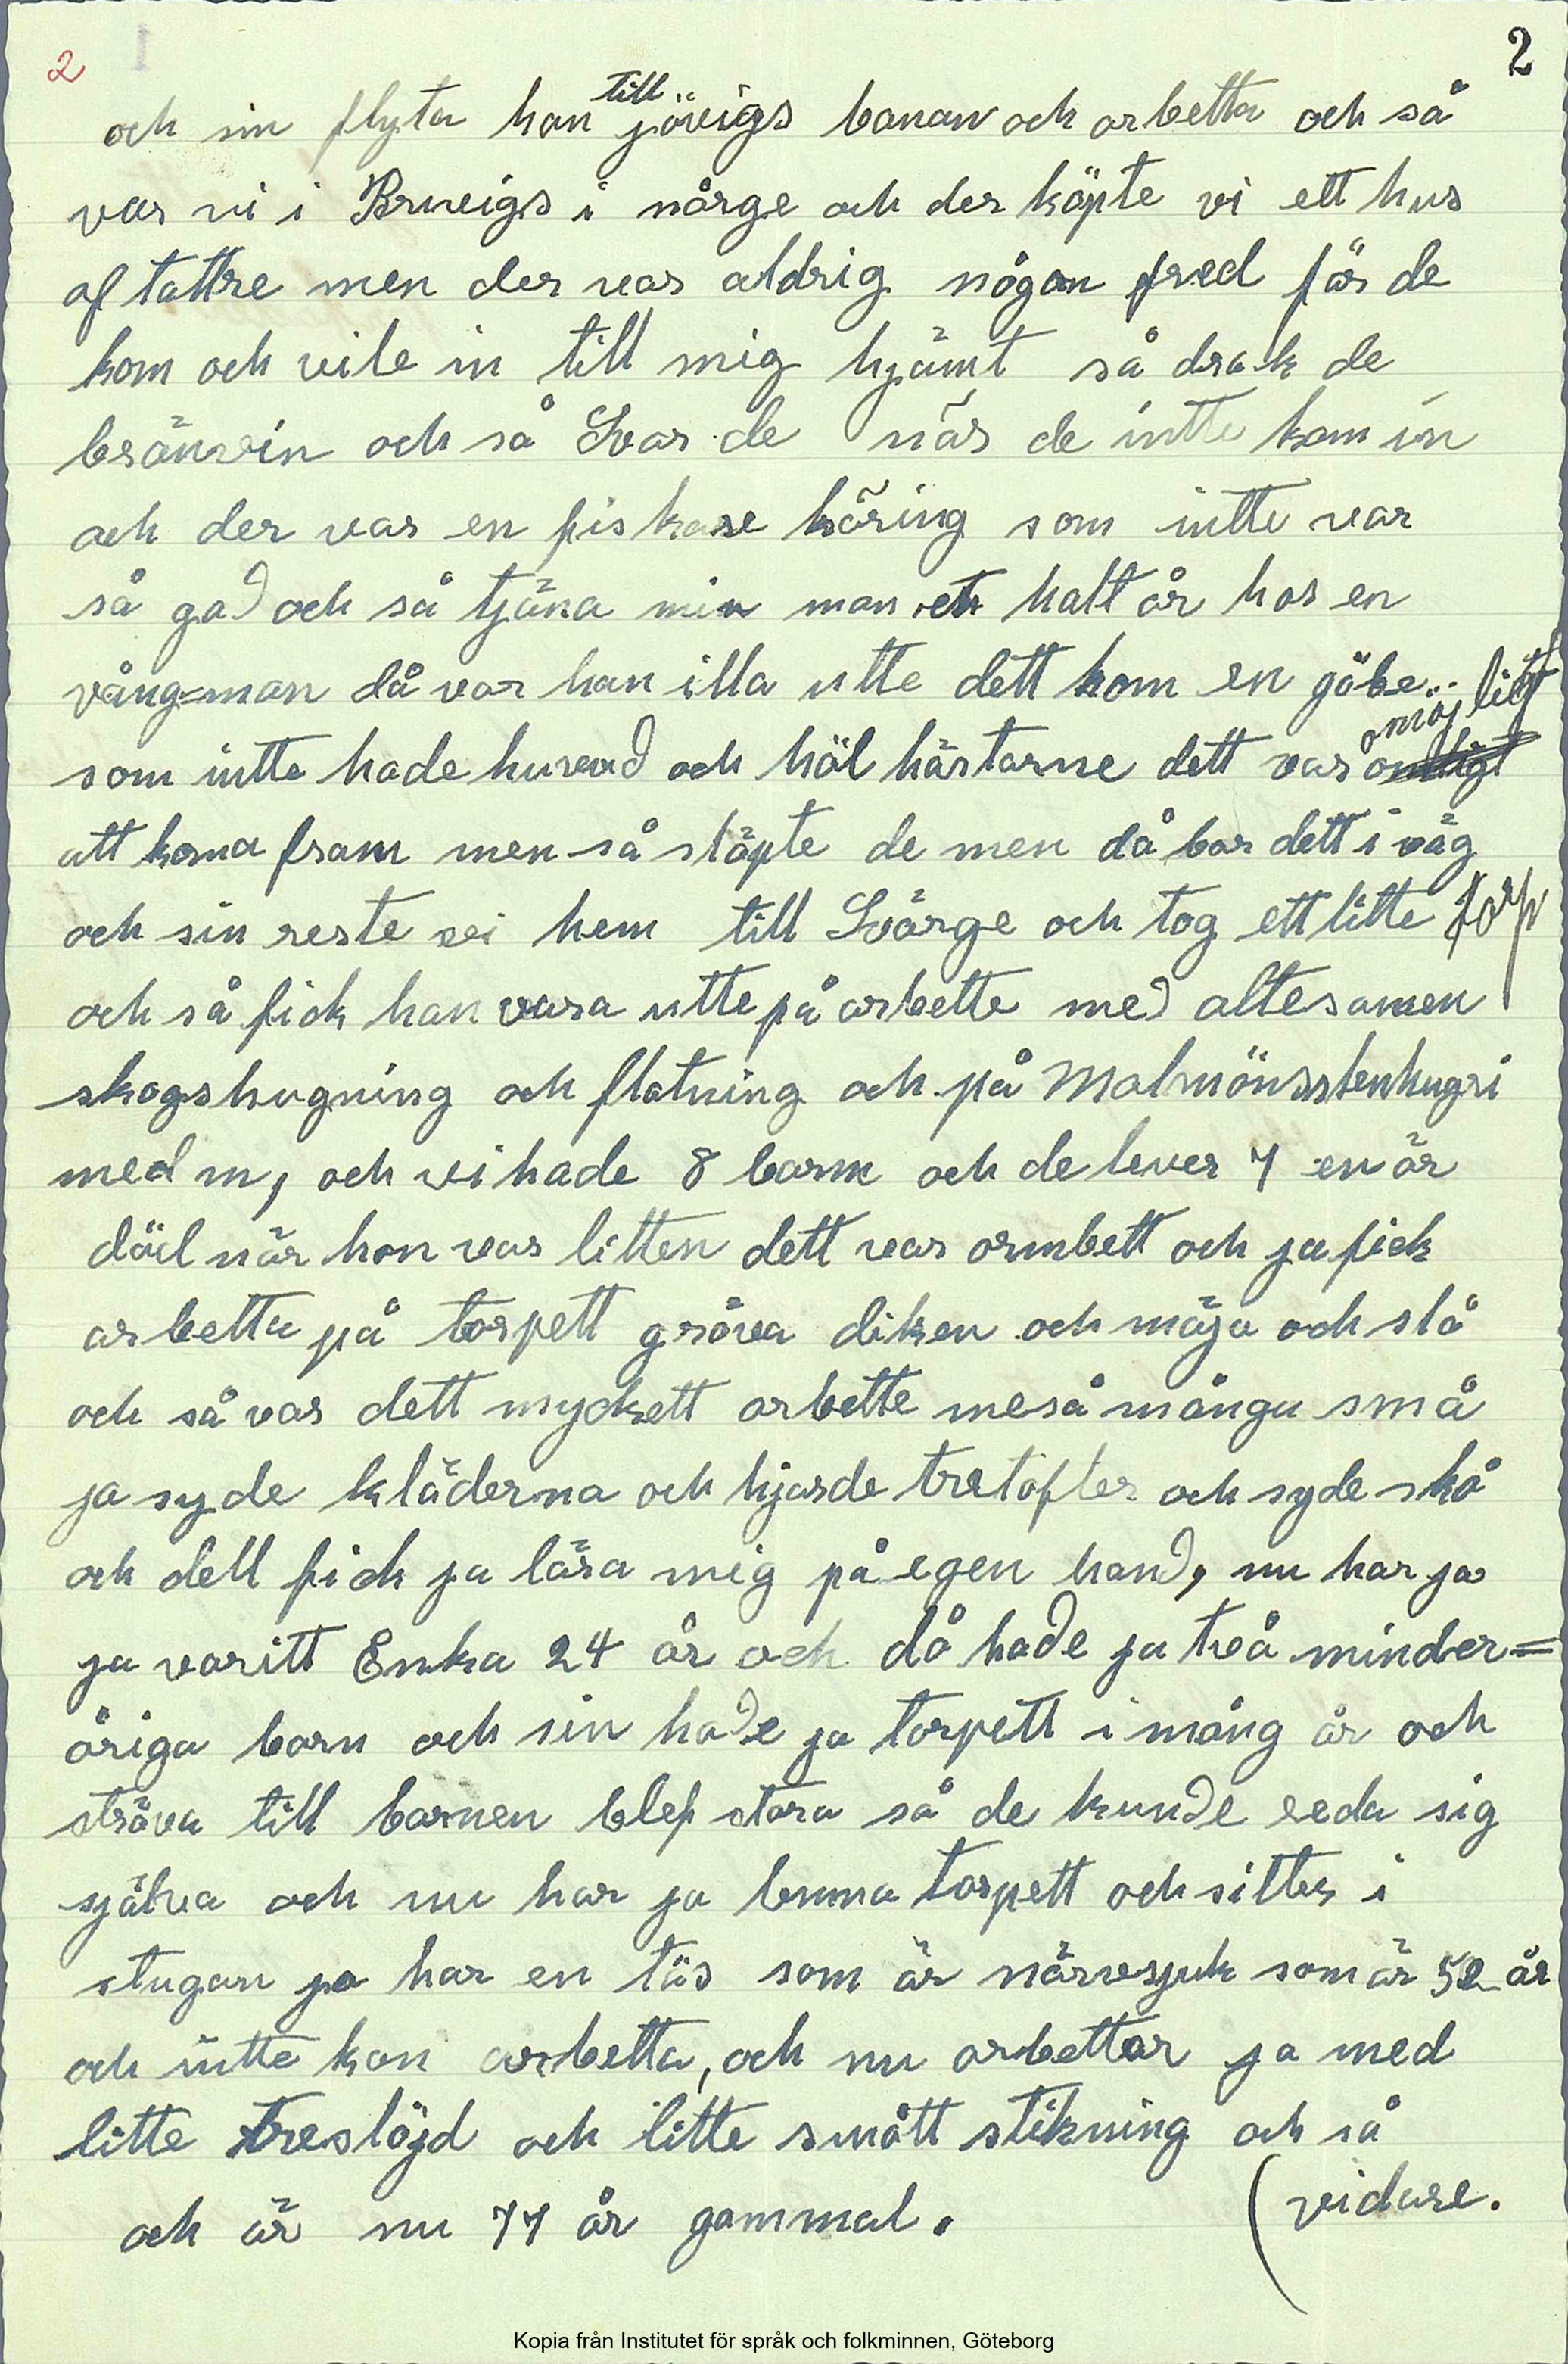 2
2
och sin flyta han till jövigs banan och arbetta och så
var vi i Bruveigs i nårge och der köpte vi ett hus
af tattre men der var aldrig någon fred för de
kom och vile in till mig hjämt så drak de
bränvin och så Svor de när de intte kom in
och der var en fiskare käring som intte var
så god och så tjäna min man ett halt år hos en
vång=man då var han illa utte dett kom en göbe
som intte hade huvud och höl hästarne dett var omöjligt
att koma fram men så släpte de men då bar dett i väg
och sin reste vi hem till Svärge och tog ett litte torp
och så fick han vara utte på arbette med altesamen
skogshugning och flotning och på Malmönsstenhugri
med m, och vi hade 8 barn och de lever 7 en är
död när hon var litten dett var ormbett och ja fick
arbetta på torpett gräva diken och mäja och slå
och så var dett myckett arbette meså många små
ja syde kläderna och hjorde tretofler och syde skå
och dett fick ja lära mig på egen hand, nu har ja
ja varitt Enka 24 år och då hade ja två minder=
åriga barn och sin hade ja torpett i mång år och
sträva till barnen blef stora så de kunde reda sig
själva och nu har ja lemna torpett och sitter i
stugan ja har en täs som är närvsjuk som är 52 år
och intte kan arbetta, och nu arbettar ja med
litte treslöjd och litte smått stikning och så
(vidare.
och är nu 77 år gammal.
Kopia från Institutet för språk och folkminnen, Göteborg